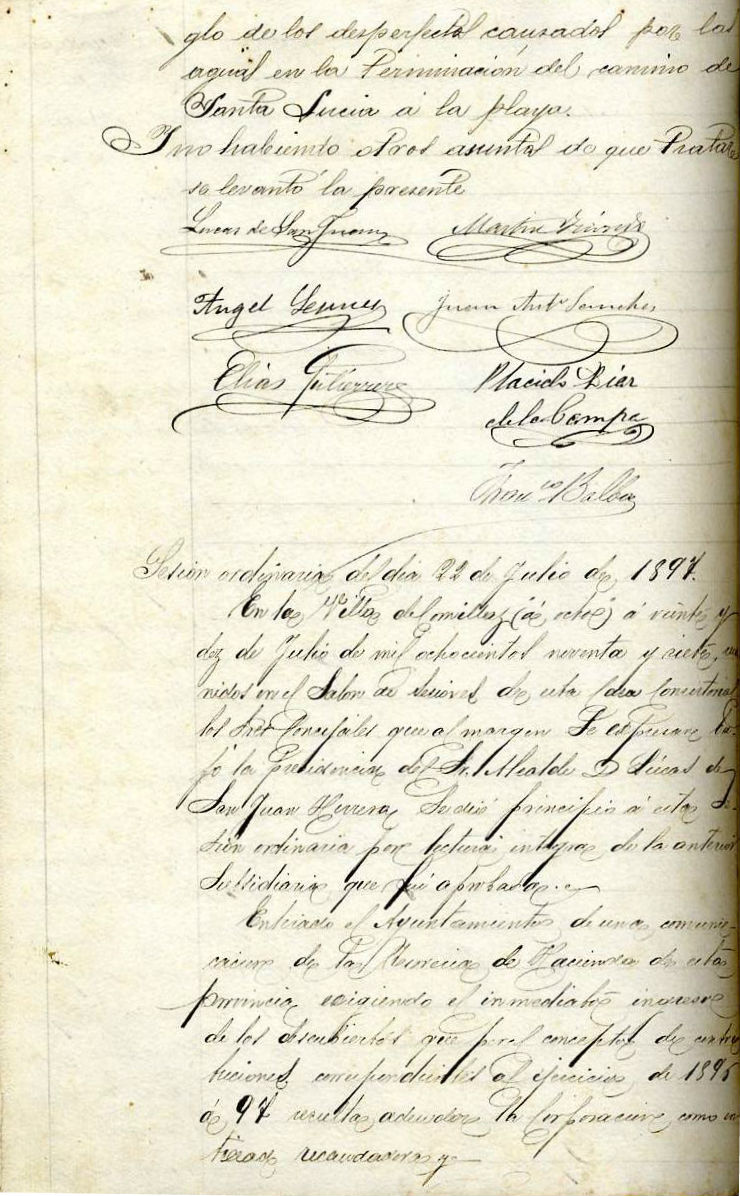 glo de los desperfectos causados por las
aguas en la terminación del camino de
Santa Lucia a la playa.
Y no habiendo otros asuntos de que tratar
se levantó la presente
Lucas de San Juan Martin
Angel Juan Antº Sanchez
Elias Gutierrez Placido Diaz
de la Campa
Franco Balbas
Sesión ordinaria del dia 22 de Julio de 1897.
En la Villa de Comillas á veinte y
dos de Julio de mil ochocientos noventa y siete, reu
nidos en el Salon de Sesiones de esta Casa Consistorial
los Sres Concejales que al margen se expresan ba-
jo la presidencia del Sr. Alcalde D. Lucas de
San Juan Herrera, se dió principio á esta se-
sión ordinaria por lectura integra de la anterior
subsidiaria que fué aprobada.
Enterado el Ayuntamiento de una comuni-
cacion de la de Hacienda de esta
provincia exigiendo el inmediato ingreso
de los descubiertos que por el concepto de contri
buciones correspondientes al ejercicio de 1896
á 97 resulta adeudar la Corporacion como en
recaudadora y